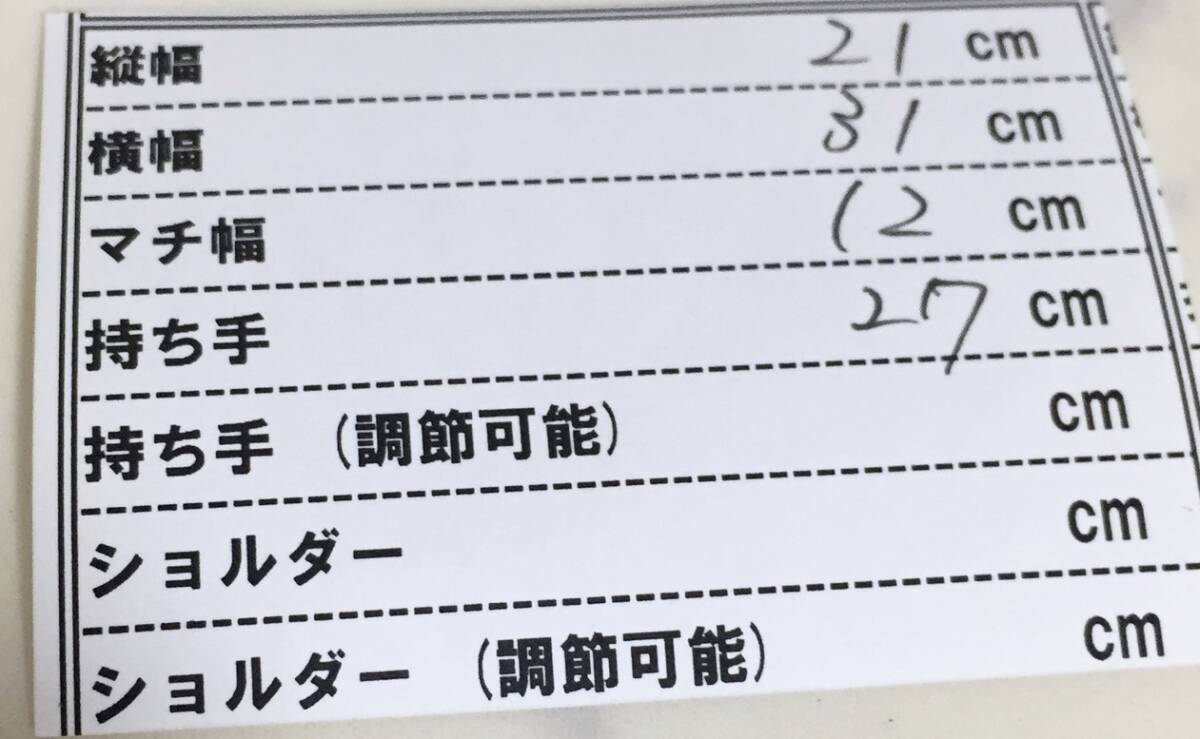 縦幅 21 cm
横幅 31 cm
マチ幅 12 cm
持ち手 27 cm
持ち手 (調節可能) cm
ショルダー cm
ショルダー (調節可能) cm